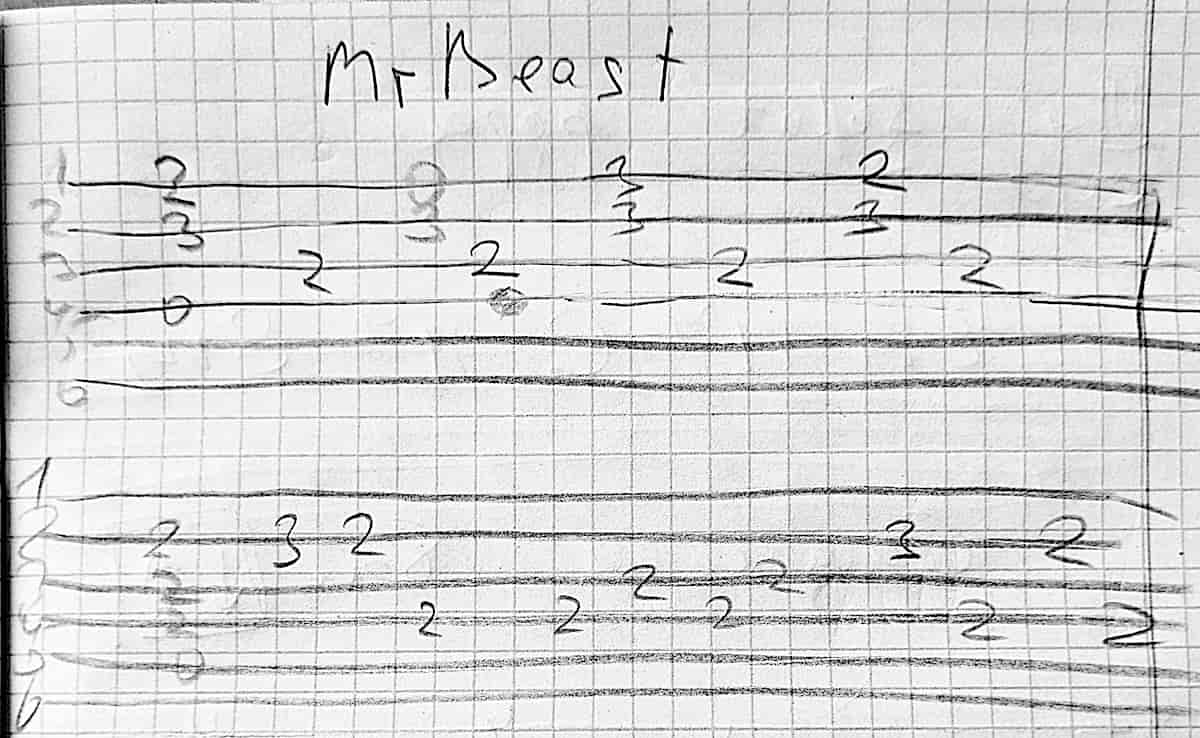 Mr Beast
1 2 2 2
2 3 3 3 3
3 2 2 2 2
4 0
5
6
1
2 2 3 2 3 2
3 2 2 2
4 2 2 2 2 2 2
5 0
6